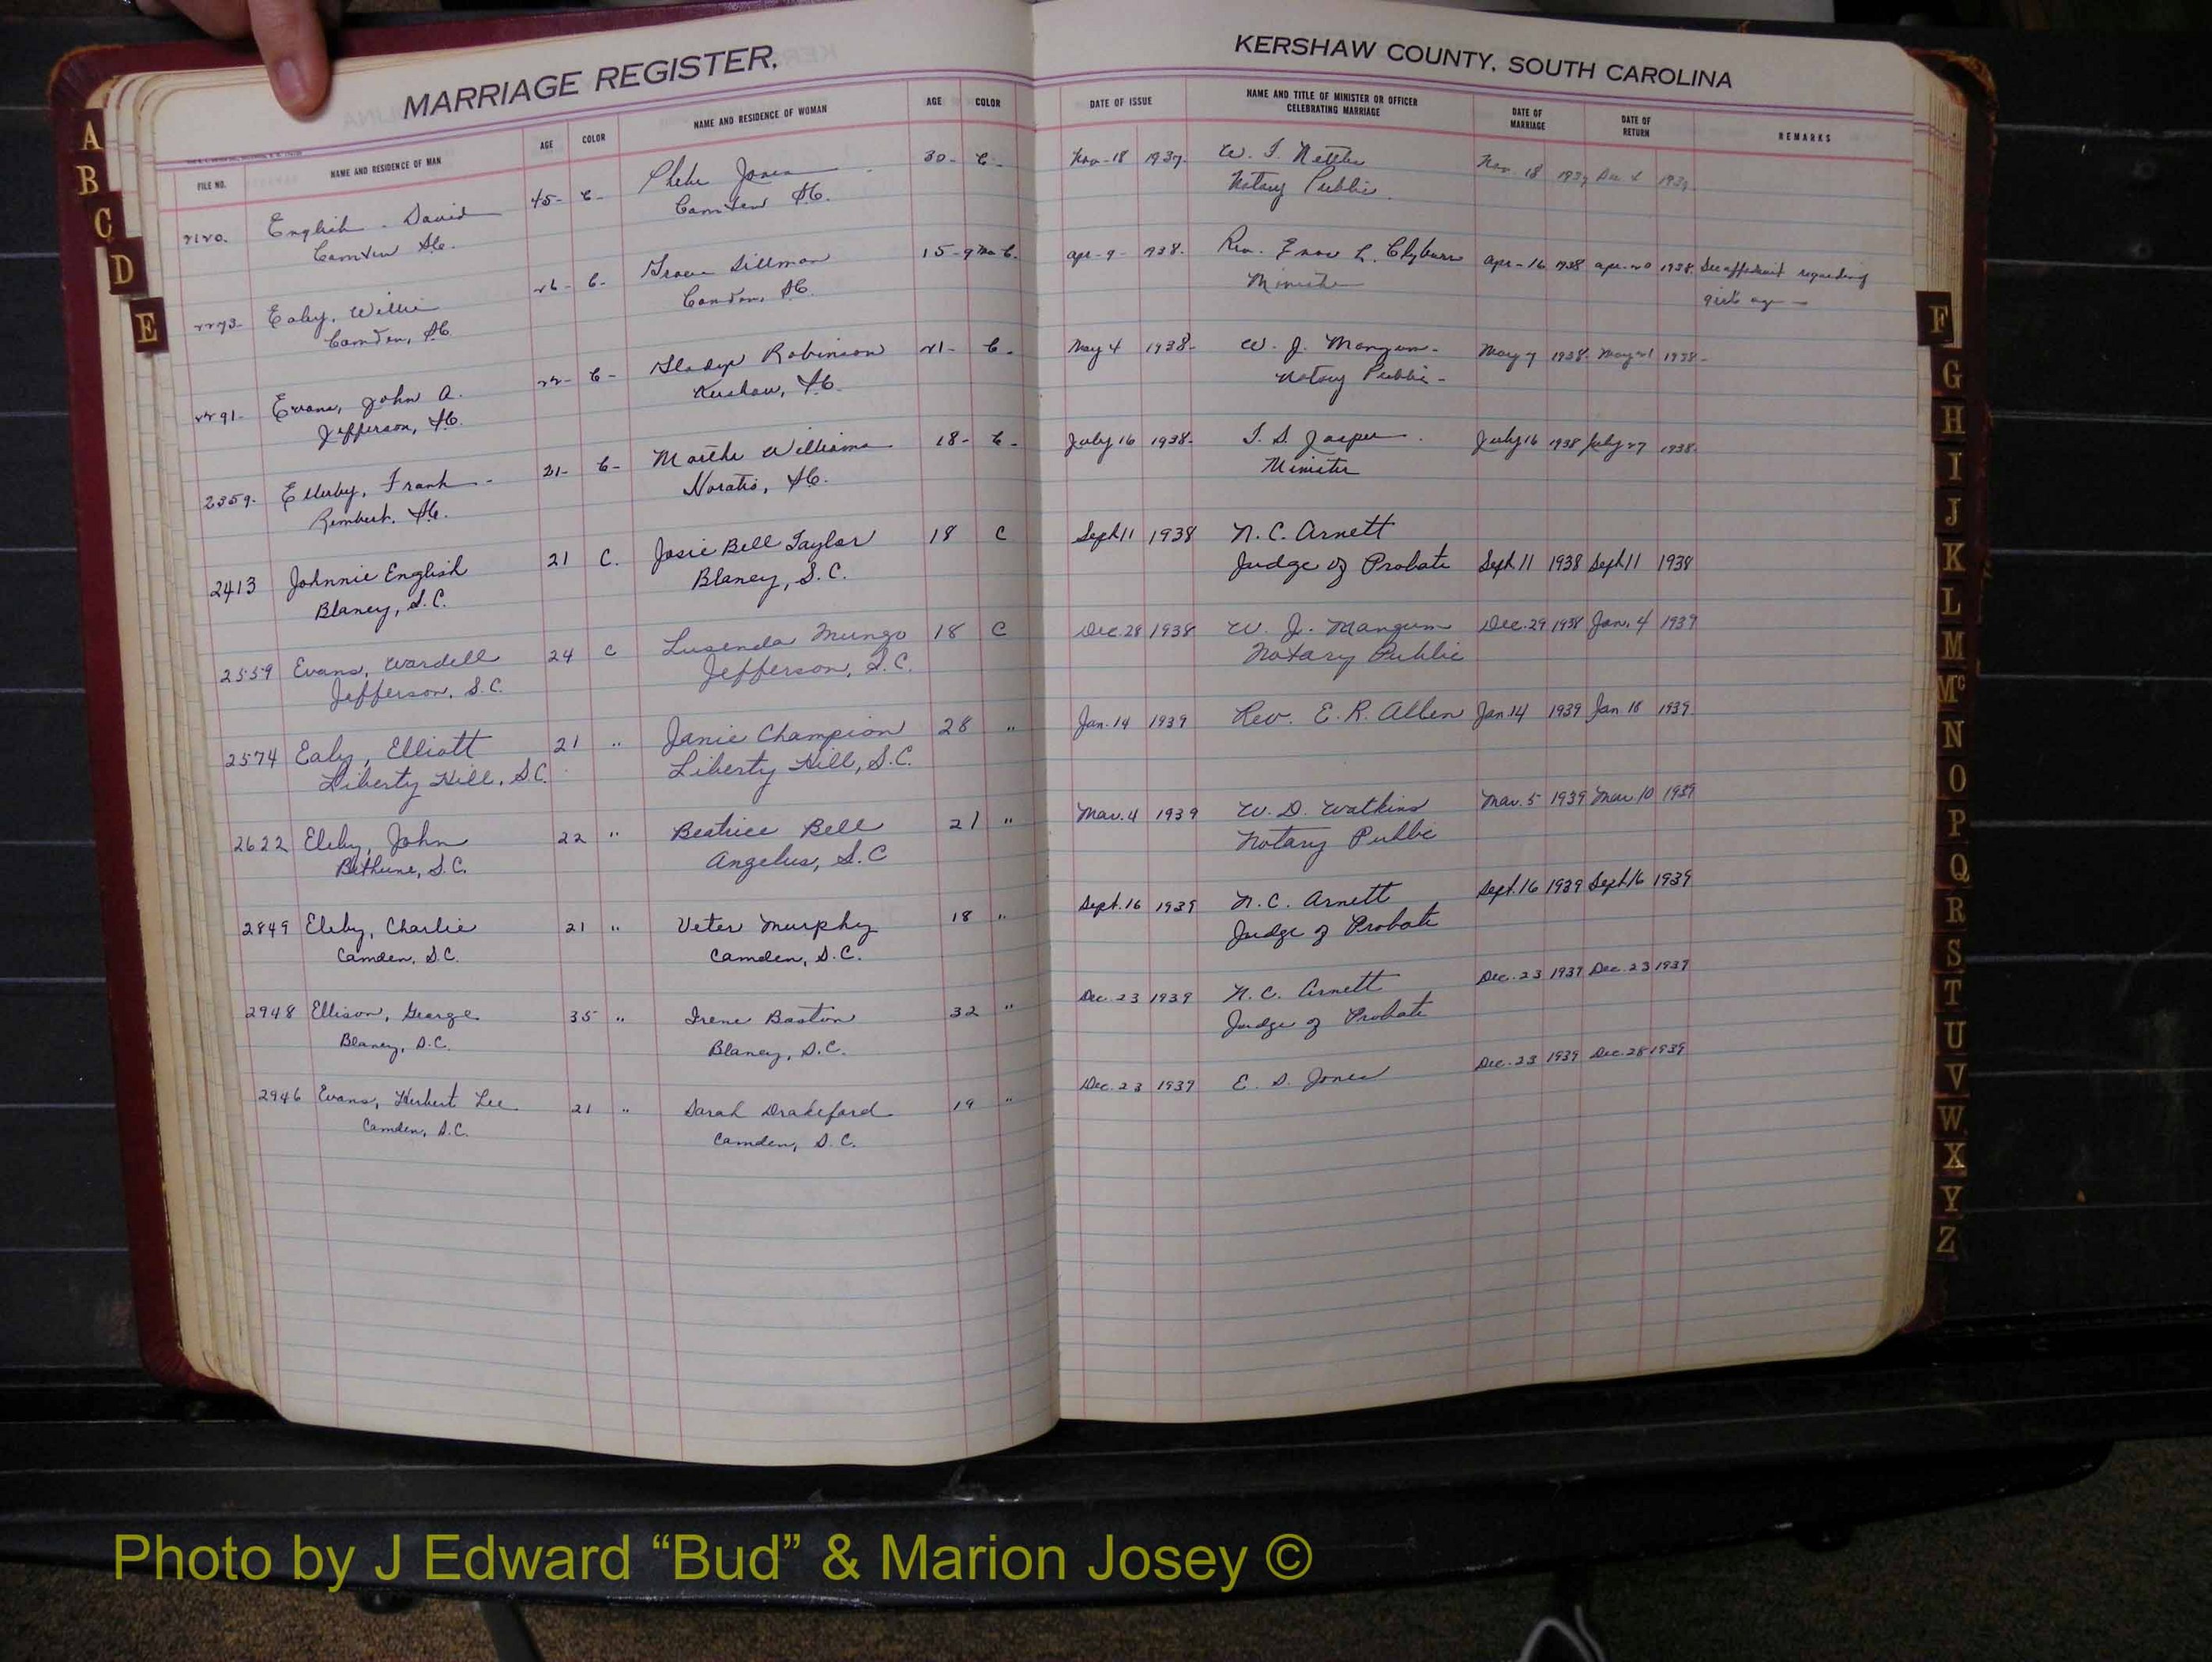 MARRIAGE REGISTER,
KERSHAW COUNTY, SOUTH CAROLINA
FILE NO. NAME AND RESIDENCE OF MAN AGE COLOR NAME AND RESIDENCE OF WOMAN AGE COLOR DATE OF ISSUE NAME AND TITLE OF MINISTER OR OFFICER CELEBRATING MARRIAGE DATE OF MARRIAGE DATE OF RETURN REMARKS
2120. English. David 45- C- Phebe Jones 30- C- Nov-18 1937. W. T. Nettles Nov. 18 1937 Dec 1937.
Camden SC. Camden SC. Notary Public.
2273- Ealey, Willie 26- C- Grace Dillman 15-9 Mo C. Apr-9- 938. Rev. L. Clyburn Apr-16 1938 Apr-20 1938. See affidavit regarding
Camden, SC. Camden, SC. Minister girls age-
2291- Evans, John A. 22- C- Gladys Robinson 21- C- May 4 1938- W. J. Mangum- May 7 1938. May 21 1938-
Jefferson, SC. Kershaw, SC. Notary Public-
2359- Ellerby, Frank- 21- C- Martha Williams 18- C- July 16 1938- T. S. Jasper. July 16 1938 July 27 1938.
Rembert. SC. Horatio, SC. Minister
2413 Johnnie English 21 C. Josie Bell Taylor 18 C Sept 11 1938 N. C. Arnett
Blaney, S.C. Blaney, S.C. Judge of Probate Sept. 11 1938 Sept 11 1938
2559 Evans, Wardell 24 C Lusenda Mungo 18 C Dec. 28 1938 W. J. Mangum Dec. 29 1938 Jan. 4 1939
Jefferson, S.C. Jefferson, S.C. Notary Public
2574 Ealy, Elliott 21 " Janie Champion 28 " Jan. 14 1939 Rev. E. R. Allen Jan 14 1939 Jan 18 1939
Liberty Hill, S.C. Liberty Hill, S.C.
2622 Eleby, John 22 " Beatrice Bell 21 " Mar. 4 1939 W. D. Watkins Mar. 5 1939 Mar 10 1939
Bethune, S.C. Angelus, S.C Notary Public
2849 Eleby, Charlie 21 " Veter Murphy 18 " Sept. 16 1939 N. C. Arnett Sept. 16 1939 Sept 16 1939
Camden, S.C. Camden, S.C. Judge of Probate
2948 Ellison, George 35 " Irene Boston 32 " Dec. 23 1939 N. C. Arnett Dec. 23 1939 Dec. 23 1939
Blaney, S.C. Blaney, S.C. Judge of Probate
2946 Evans, Herbert Lee 21 " Sarah Drakeford 19 " Dec. 23 1939 E. D. Jones Dec. 23 1939 Dec. 28 1939
Camden, S.C. Camden, S.C.
A
B
C
D
E
F
G
H
I
J
K
L
M
Mc
N
O
P
Q
R
S
T
U
V
W
X
Y
Z
Photo by J Edward “Bud” & Marion Josey ©